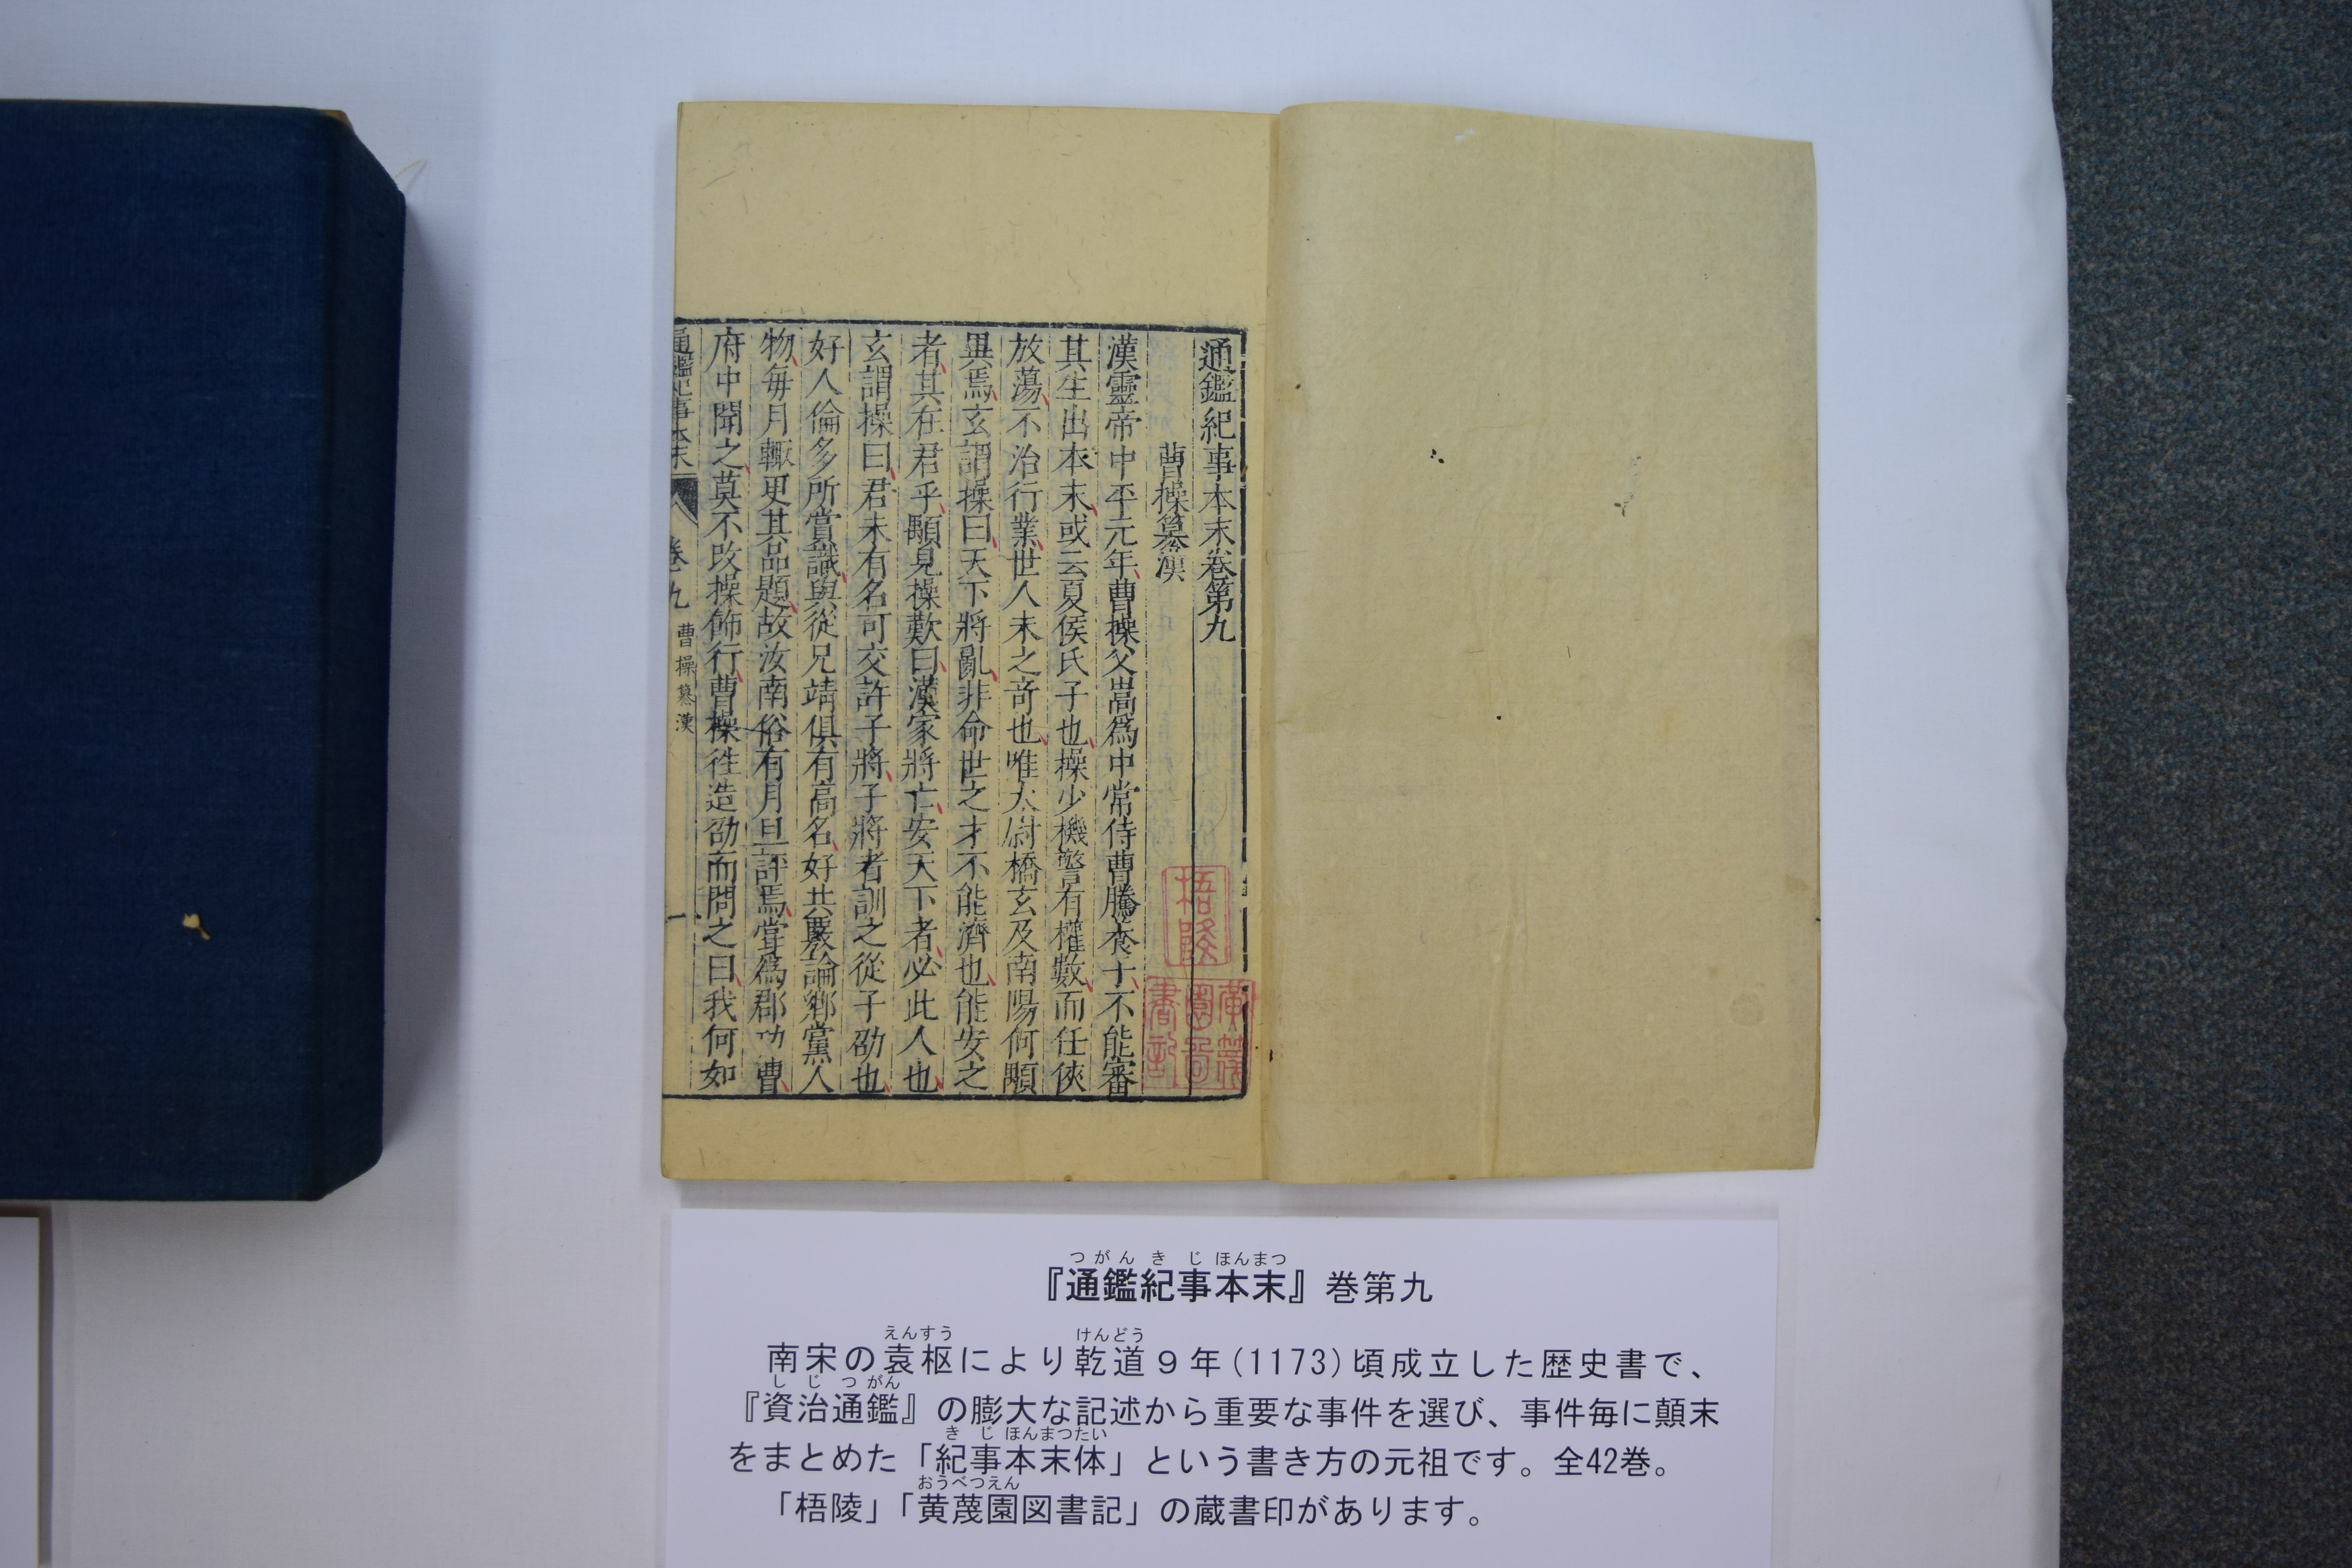 通鑑紀事本末卷第九
曹操篡漢
漢靈帝中平元年曹操父嵩爲中常侍曹騰養子不能審
其生出本末或云夏侯氏子也操少機警有權數而任俠
放蕩不治行業世人未之奇也唯太尉橋玄及南陽何顒
異焉玄謂操曰天下將亂非命世之才不能濟也能安之
者其在君乎顒見操歎曰漢家將亡安天下者必此人也
玄謂操曰君未有名可交許子將子將者訓之從子劭也
好人倫多所賞識與從兄靖俱有高名好共覈論鄉黨人
物每月輙更其品題故汝南俗有月旦評焉嘗爲郡功曹
府中聞之莫不改操飾行曹操徃造劭而問之曰我何如
通鑑紀事本末 卷九 曹操篡漢 一
梧陵
黄蔑園圖書記
つがんきじほんまつ
『通鑑紀事本末』巻第九
えんすう けんどう
南宋の袁枢により乾道９年(1173)頃成立した歴史書で、
しじつがん
『資治通鑑』の膨大な記述から重要な事件を選び、事件毎に顛末
きじほんまつたい
をまとめた「紀事本末体」という書き方の元祖です。全42巻。
おうべつえん
「梧陵」「黄蔑園図書記」の蔵書印があります。